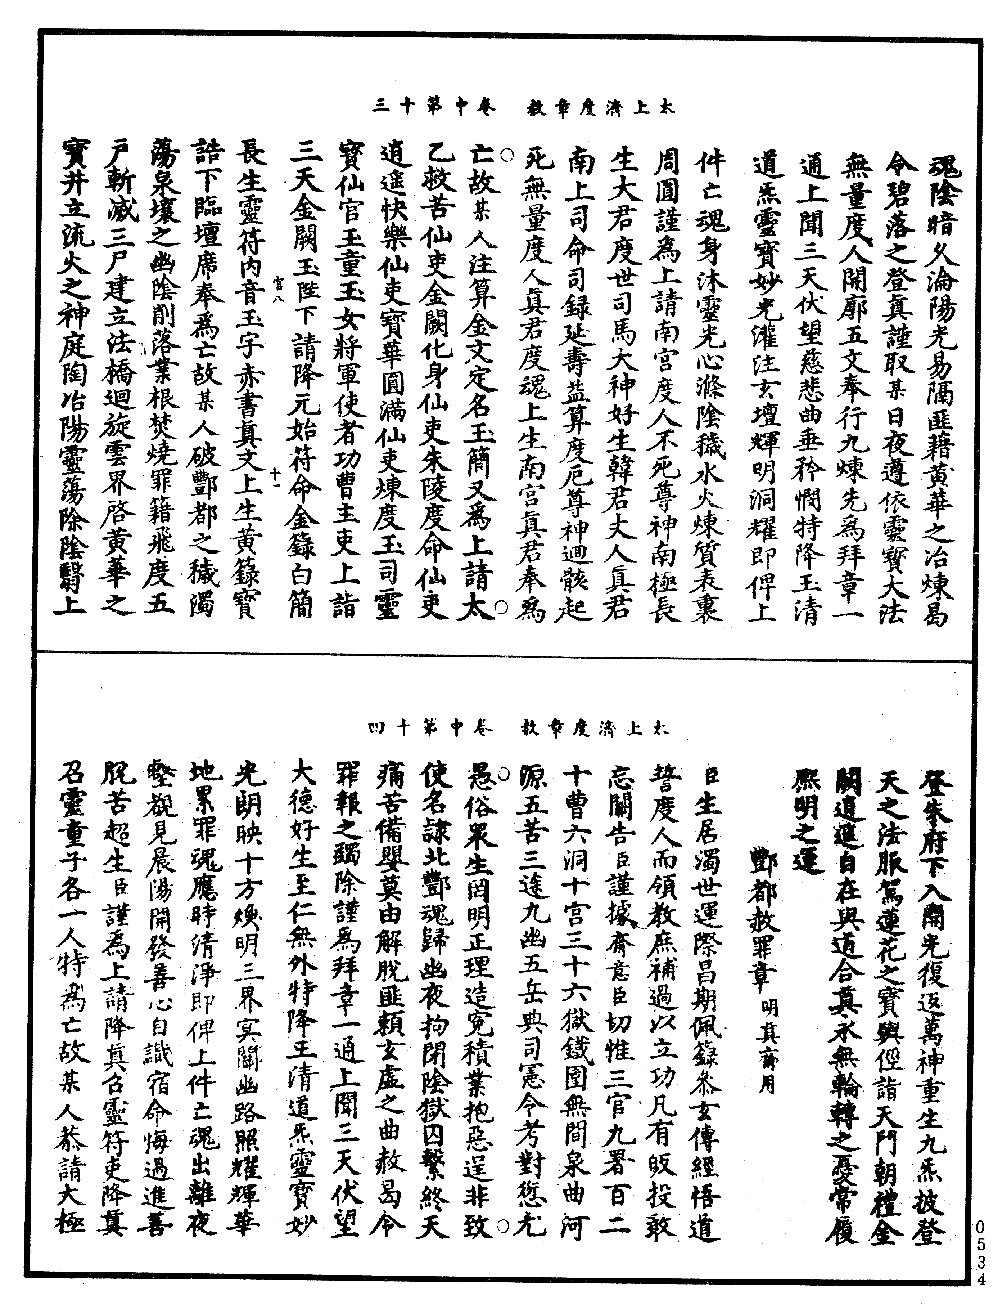 太上濟度章赦　卷中第十三
魂陰暗久淪陽光易隔匪藉黃華之冶煉曷
令碧落之登真謹取某日夜遵依靈寶大法
無量度人開廓五文奉行九煉先為拜章一
通上聞三天伏望慈悲曲垂矜憫特降玉清
道炁靈寶妙光灌注玄壇輝明洞耀即俾上
件亡魂身沐靈光心滌陰穢水火煉質表裏
周圓謹為上請南宮度人不死尊神南極長
生大君度世司馬大神好生韓君丈人真君
南上司命司錄延壽益算度厄尊神迴骸起
死無量度人真君度魂上生南宮真君奉為
亡故某人注算金文定名玉簡又為上請太
乙救苦仙吏金闕化身仙吏朱陵度命仙吏
逍遥快樂仙吏寶華圓滿仙吏煉度玉司靈
寶仙官玉童玉女將軍使者功曹主吏上詣
三天金闕玉陛下請降元始符命金籙白簡
宮八　十一
長生靈符內音玉字赤書真文上生黃籙寶
誥下臨壇席奉為亡故某人破酆都之穢濁
蕩泉壤之幽陰削落業根焚燒罪籍飛度五
戶斬滅三尸建立法橋迴旋雲界啓黃華之
寶井立流火之神庭陶冶陽靈蕩除陰翳上
太上濟度章赦　卷中第十四
登朱府下入開光復返萬神重生九炁披登
天之法服駕蓮花之寶輿徑詣天門朝禮金
闕逍遥自在與道合真永無輪轉之憂常履
熙明之運
酆都救罪章　明真齋用
臣生居濁世運際昌期佩籙叅玄傳經悟道
誓度人而領教庶補過以立功凡有皈投敢
忘關告臣謹據齋意臣切惟三官九署百二
十曹六洞十宮三十六獄鐵圍無間泉曲河
源五苦三途九幽五岳典司憲令考對愆尤
愚俗眾生罔明正理造寃積業抱惡逞非致
使名隷北酆魂歸幽夜拘閉陰獄囚繫終天
痛苦備嬰莫由解脫匪賴玄虛之曲赦曷令
罪報之蠲除謹為拜章一通上聞三天伏望
大德好生至仁無外特降玉清道炁靈寶妙
光朗映十方煥明三界冥關幽路照耀輝華
地累罪魂應時清淨即俾上件亡魂出離夜
壑覩見晨陽開發善心自識宿命悔過進善
脫苦超生臣謹為上請降真召靈符吏降真
召靈童子各一人特為亡故某人恭請太極
0534